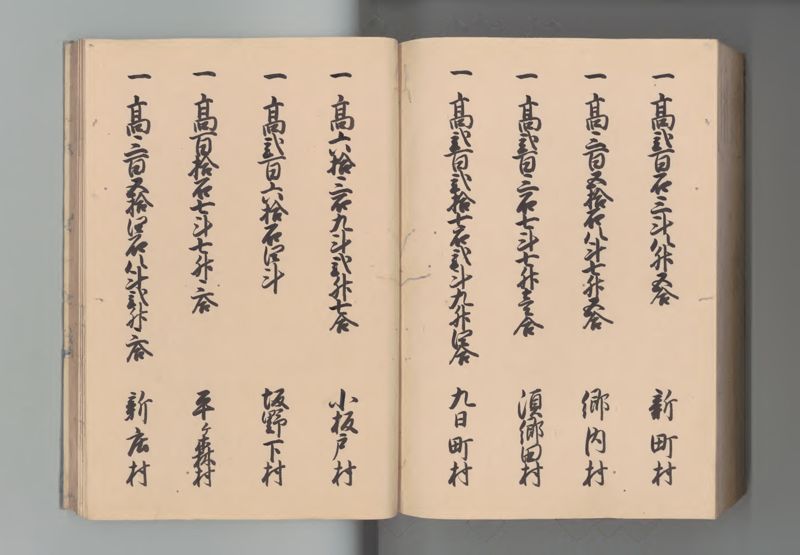 一 高弐百石三斗八升五合 新町村
一 高三百五拾石八斗七升五合 郷内村
一 高弐百三石七斗七升壱合 須郷田村
一 高弐百弐拾七石弐斗九升四合 九日町村
一 高六拾三石九斗弐升七合 小板戸村
一 高弐百六拾石四斗 坂野下村
一 高百拾石七斗七升六合 平ヶ森村
一 高三百五拾四石八斗弐升六合 新庄村